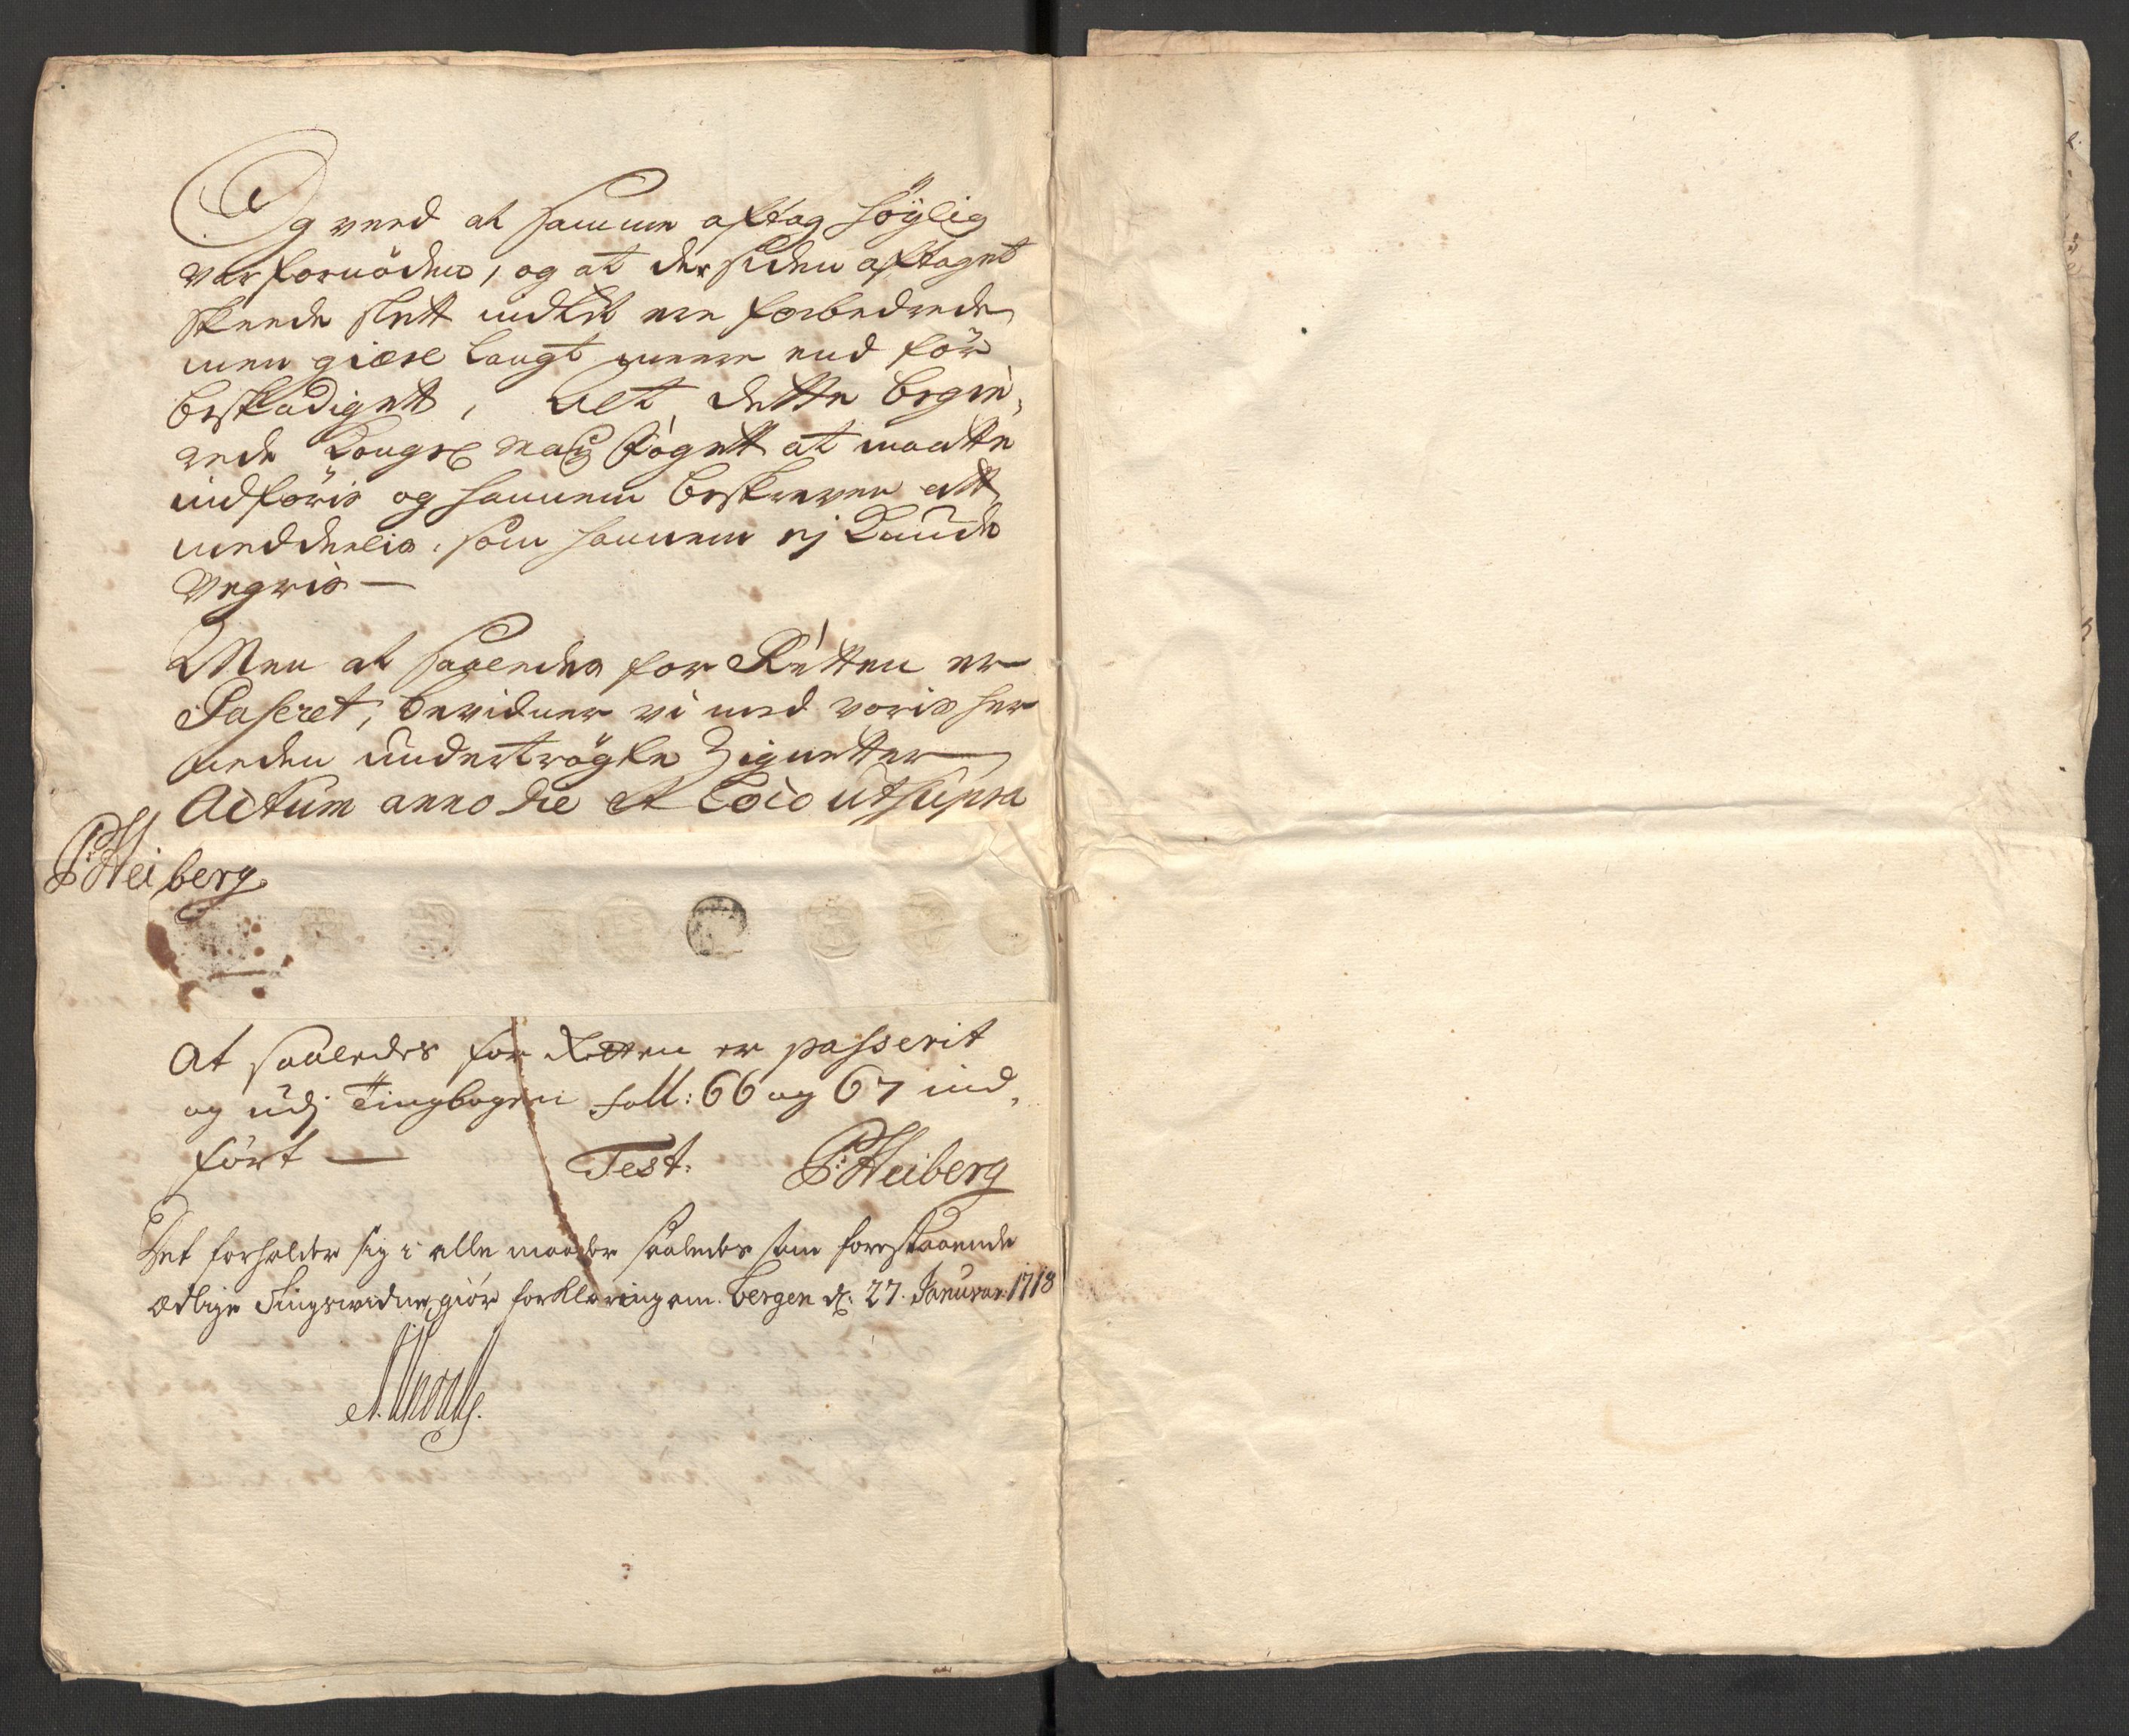 Og veed at samme aftag höÿlig
var fornöden, og at der siden aftaget
skeede slett indtet ere forbedrede
men giæse langt meere end för
beskadigett, alt dette begie-
rede Kongl May Fogett at maatte
indföris og hannem beskreven
meddeelis, som hannem ej Kunde
Vegris —
Men at saaledes for Retten er
Paseret, bevidner vi med voris her
neden undertrögte Zignetter
Actum anno die et Loco utsupra
P:Heiberg
At saaledes for Retten er passerit
og udj Tingbogen foll: 66 og 67 ind-
fört — Test. P:Heiberg
Det forholder sig i alle maader saaledes som forestaaende
ædlige Tingswidne giör forklaring om. Bergen d. 27. Januar: 1718